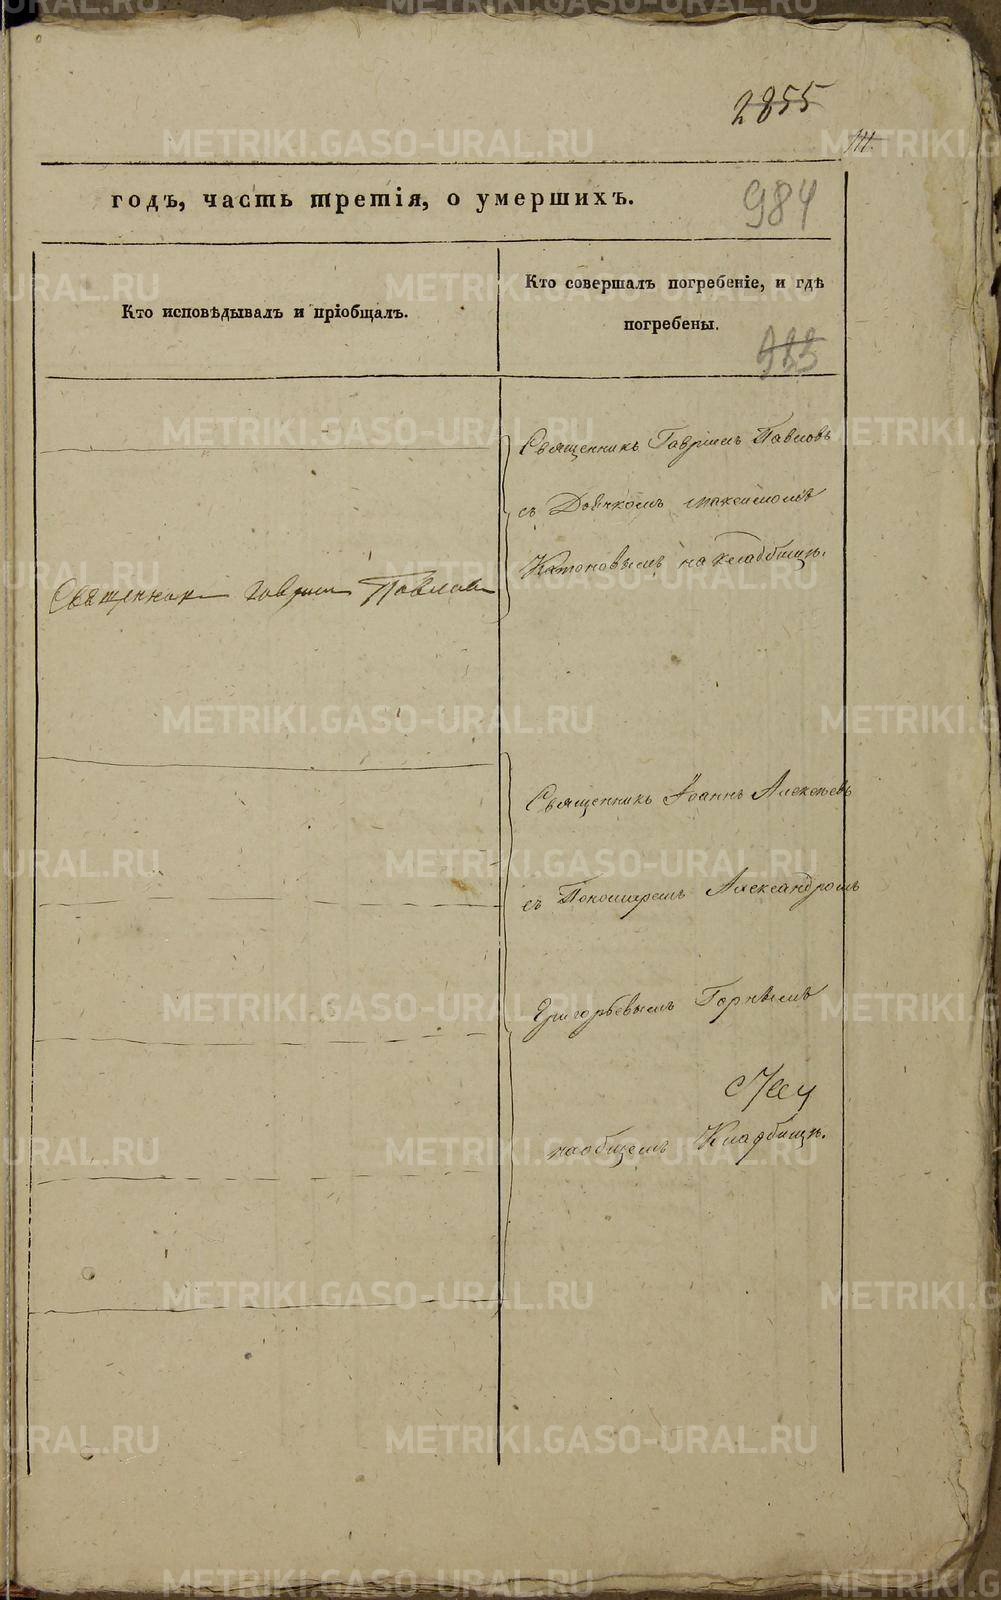 2855
годъ, часть третія, о умершихъ.
984
Кто исповѣдывалъ и пріобщалъ.
Кто совершалъ погребеніе, и гдѣ
погребены.
Священникъ Гавріилъ Павловъ
съ Дьячкомъ Максимомъ
на кладбищѣ.
Священникъ Гавріилъ Павловъ
Священникъ Іоаннъ Алексѣевъ
съ Пономаремъ Александромъ
Григорьевымъ Горнымъ
на общемъ Кладбищѣ.
METRIKI.GASO-URAL.RU